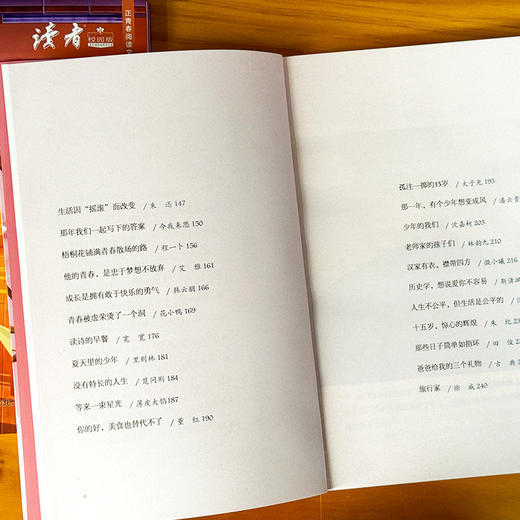 读者
校园版
正青春阅读文
生活因“摇滚”而改变 / 朱 迅 147
那年我们一起写下的答案 / 今我来思 150
梧桐花铺满青春散场的路 / 程一卜 156
他的青春，是忠于梦想不放弃 / 艾 雅 161
成长是拥有敢于快乐的勇气 / 韩云朋 166
青春被虚荣烫了一个洞 / 花小鸭 169
读诗的早餐 / 宽 宽 176
夏天里的少年 / 里则林 181
没有特长的人生 / 楚问荆 184
等来一束星光 / 薄皮大馅 187
你的好，美食也替代不了 / 董 红 190
孤注一掷的15岁 / 大子光 195
那一年，有个少年想变成风 / 潘云贵
少年的我们 / 沈嘉柯 203
老师家的孩子们 / 林韵九 210
汉家有衣，襟带四方 / 微小曦 216
历史学，想说爱你不容易 / 斯潇
人生不公平，但生活是公平的
十五岁，惊心的辉煌 / 朱 纪
那些日子简单如指环 / 田 俊
爸爸给我的三个礼物 / 古 典
旅行家 / 徐 威 240